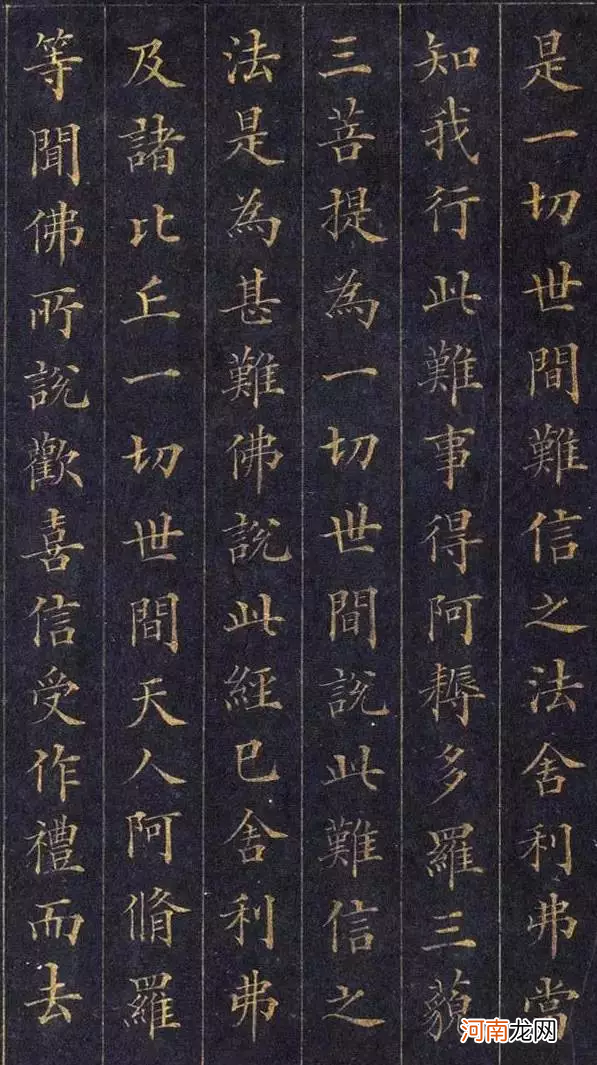 是一切世間難信之法舍利弗當
知我行此難事得阿耨多羅三藐
三菩提為一切世間說此難信之
法是為甚難佛說此經已舍利弗
及諸比丘一切世間天人阿脩羅
等聞佛所說歡喜信受作禮而去
河南龙网